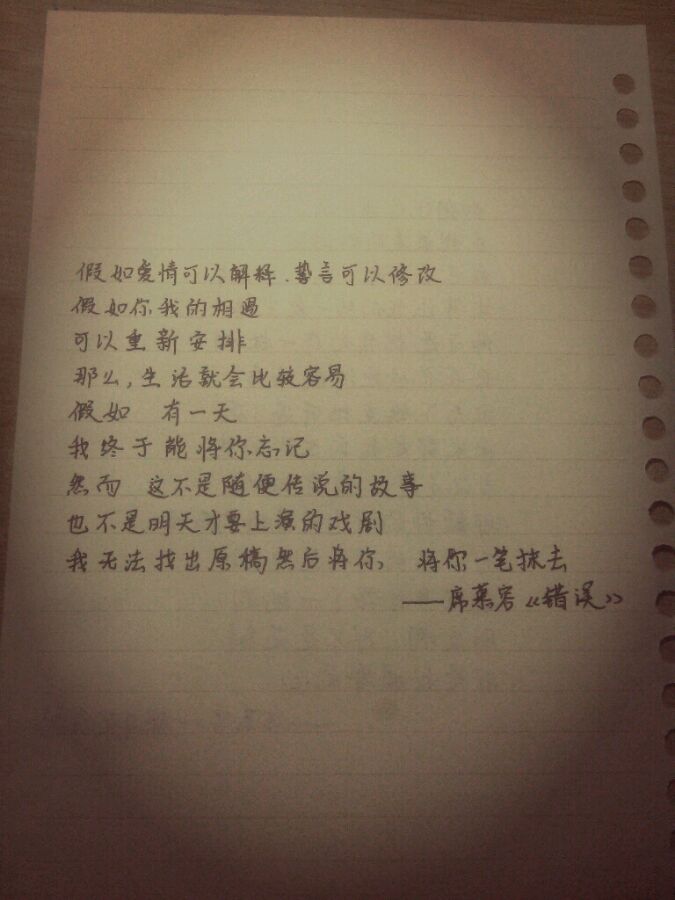 假如爱情可以解释.誓言可以修改
假如你我的相遇
可以重新安排
那么,生活就会比较容易
假如 有一天
我终于能将你忘记
然而 这不是随便传说的故事
也不是明天才要上演的戏剧
我无法找出原稿然后将你, 将你一笔抹去
——席慕容《错误》